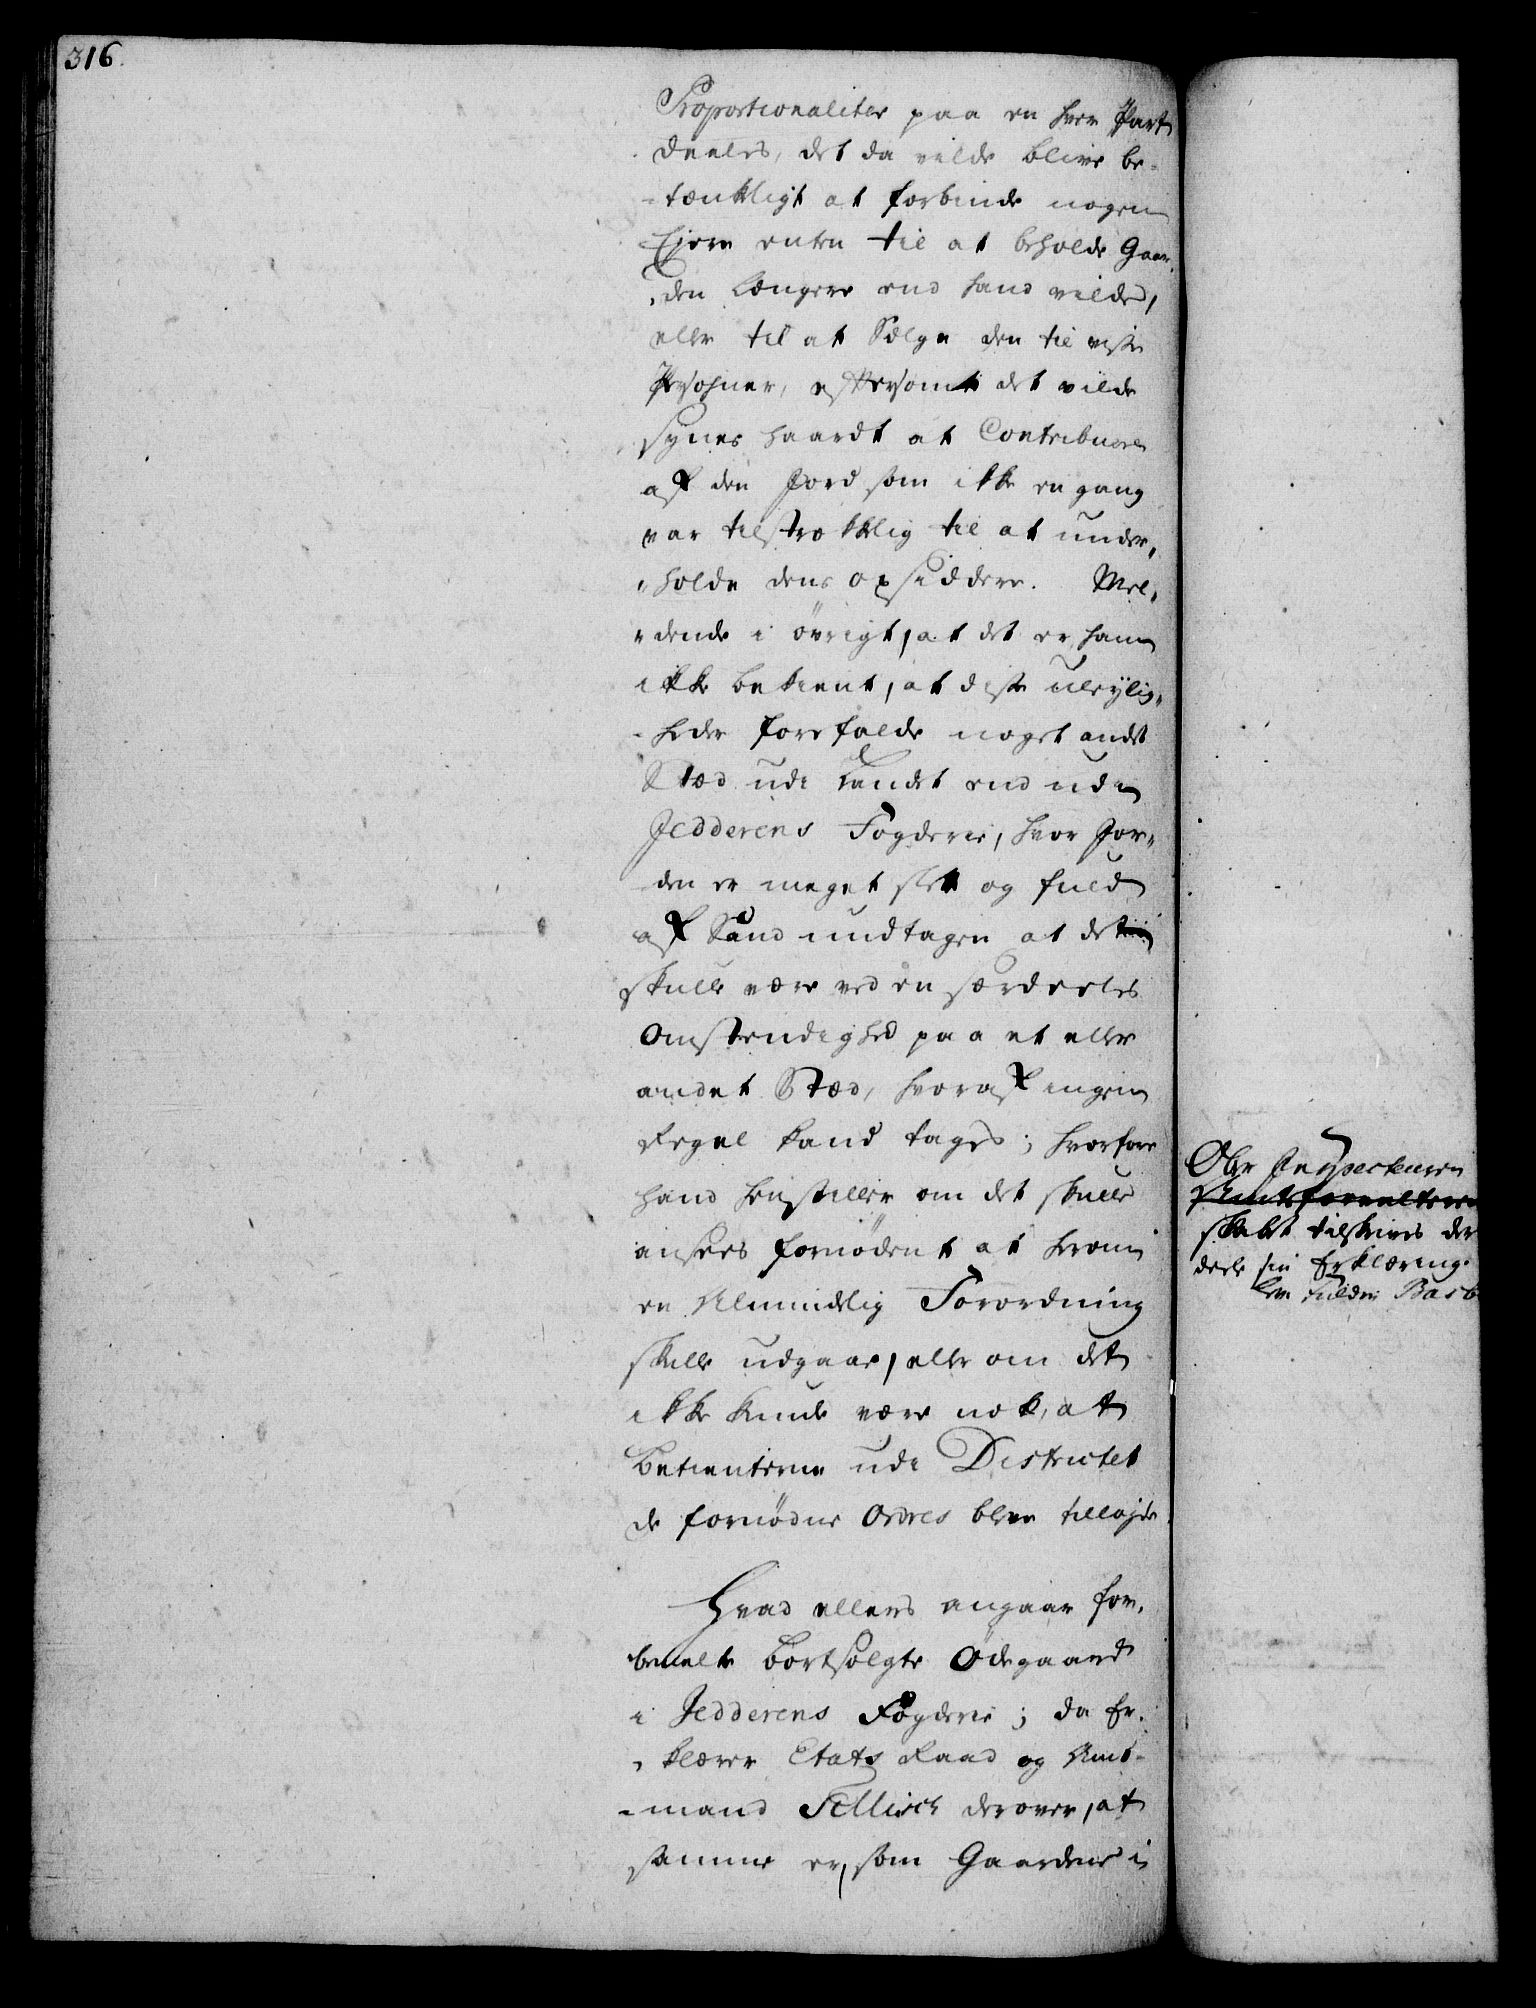 316.
Proportionaliter paa en hver Part
deeles, det da vilde blive be-
-tænkligt at forbinde nogen
Ejere enten til at beholde Gaar,
,den længere end hand vilde,
eller til at Sælge den til visse
Persohner, eftersom det vilde
synes haardt at Contribuere
af den Jord som ikke en gang
var tilstrækkelig til at under,,
,,holde dens opsiddere. Mel,,
,,dende i övrigt, at det er ham
ikke bekient, at disse uleylig,,
-heder forefalde noget andet
Stæd udi Landet end udi
Jedderens Fogderie, hvor Jor,,
den er meget slet og fuld
af Sand undtagen at det
skulle være ved en særdeeles
Omstendighed paa et eller
andet Stæd, hvoraf ingen
Regel kand tages; hvorfore
hand henstiller om det skulle
ansees fornödent at herom
en Almindelig Forordning
skulle udgaae, eller om det
ikke kunde være nok, at
Betienterne udi Districtet
de fornödne Ordres blev tillagde
Hvad ellers angaar for,
bemelte bortsolgte Ödegaard
i Jedderens Fogderie; da Er,
,klærer Etats Raad og Amt-
-mand derover, at
samme er, som Gaardene i
Ober Inspecteuren
Amtsforvalteren
skabet tilskrives der
deele sin Erklæring.